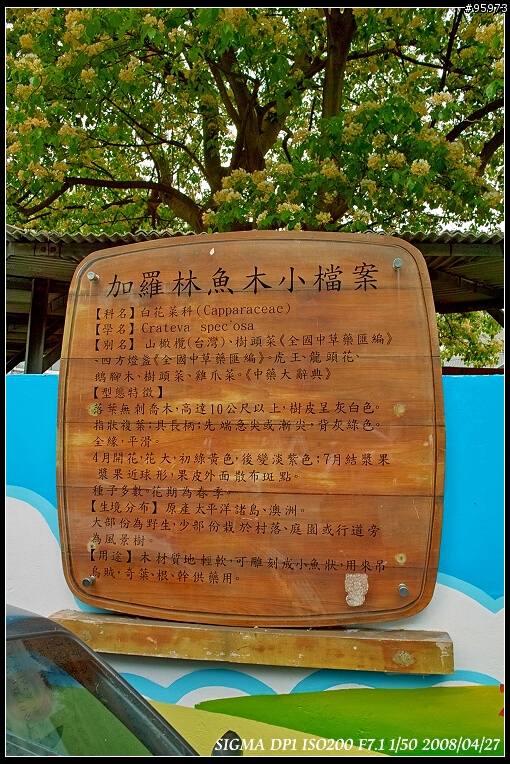 #95973
加羅林魚木小檔案
【科名】白花菜科(Capparaceae)
【學名】Crateva spec'osa
【別名】山橄欖(台灣)、樹頭菜《全國中草藥匯編》
、四方燈盞《全國中草藥匯編》。虎王、龍頭花、
鵝腳木、樹頭菜、雞爪菜。《中藥大辭典》
【型態特徵】
落葉無刺喬木,高達10公尺以上,樹皮呈灰白色。
指狀複葉;具長柄;先端急尖或漸尖,背灰綠色。
全緣,平滑。
4月開花,花大,初綠黃色,後變淡紫色;7月結漿果
漿果近球形,果皮外面散布斑點。
種子多數。花期為春季。
【生境分布】原產太平洋諸島、澳洲。
大部份為野生,少部份栽於村落、庭園或行道旁
為風景樹。
【用途】木材質地輕軟,可雕刻成小魚狀,用來吊
烏賊,奇葉、根、幹供藥用。
SIGMA DP1 ISO200 F7.1 1/50 2008/04/27